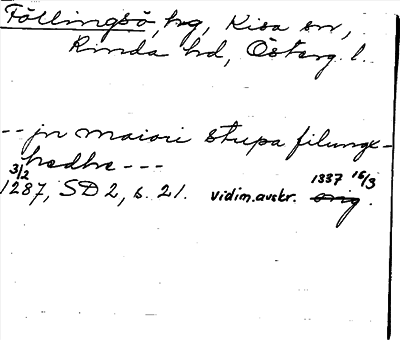 Föllingsö, hg, Kisa sn,
Kinda hd, Österg. l.
-- jn maiori stupa filungx-
hedhe ---
3/2
1287, SD 2, s. 21. vidim. avskr. 1337 16/3 orig.